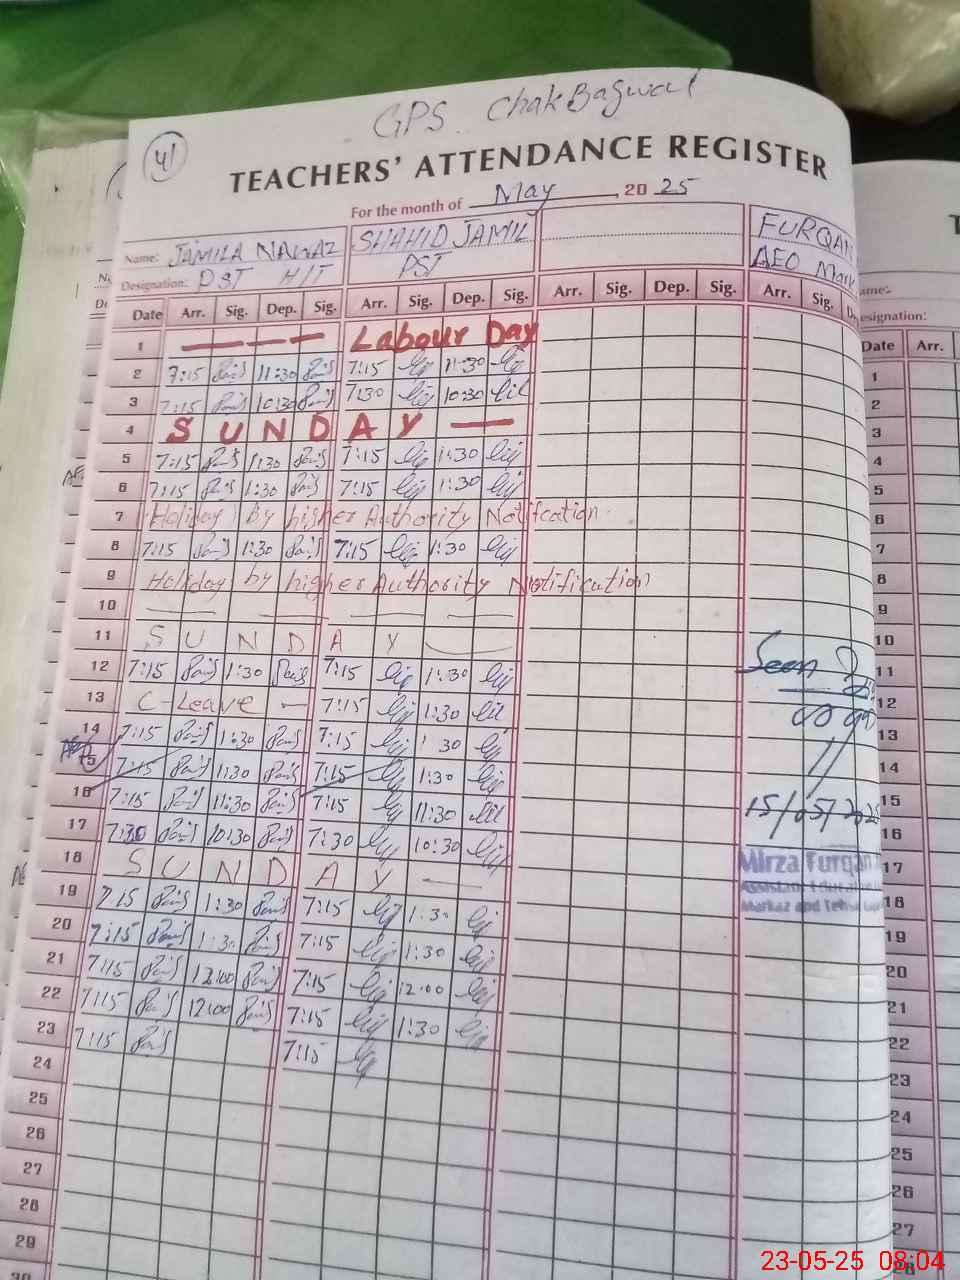 GPS Chak Bagwal
41
TEACHERS' ATTENDANCE REGISTER
For the month of May, 20 25
Name: JAMILA NAWAZ SHAHID JAMIL FURQAN
Designation: PST H/T PST AEO Mark
Date Arr. Sig. Dep. Sig. Arr. Sig. Dep. Sig. Arr. Sig. Dep. Sig. Arr. Sig.
1 Labour Day
2 7:15 11:30 7:15 11:30
3 7:15 10:30 7:30 10:30
4 SUNDAY
5 7:15 1:30 7:15 1:30
6 7:15 1:30 7:15 1:30
7 Holiday by higher Authority Notifcation
8 7:15 1:30 7:15 1:30
9 Holiday by higher Authority Notification
10
11 SUNDAY
12 7:15 1:30 7:15 1:30
13 C-Leave 7:15 1:30
14 7:15 1:30 7:15 1:30
15 7:15 1:30 7:15 1:30
16 7:15 11:30 7:15 11:30
17 7:30 10:30 7:30 10:30
18 SUNDAY
19 7:15 1:30 7:15 1:30
20 7:15 1:30 7:15 1:30
21 7:15 12:00 7:15 12:00
22 7:15 12:00 7:15 1:30
23 7:15 7:15
24
25
26
27
28
29
30
Seen
15/05/2025
Mirza Furqan
Assistant Educat
Markaz and Tehsi
Designation:
Date Arr.
1
2
3
4
5
6
7
8
9
10
11
12
13
14
15
16
17
18
19
20
21
22
23
24
25
26
27
28
23-05-25 08:04